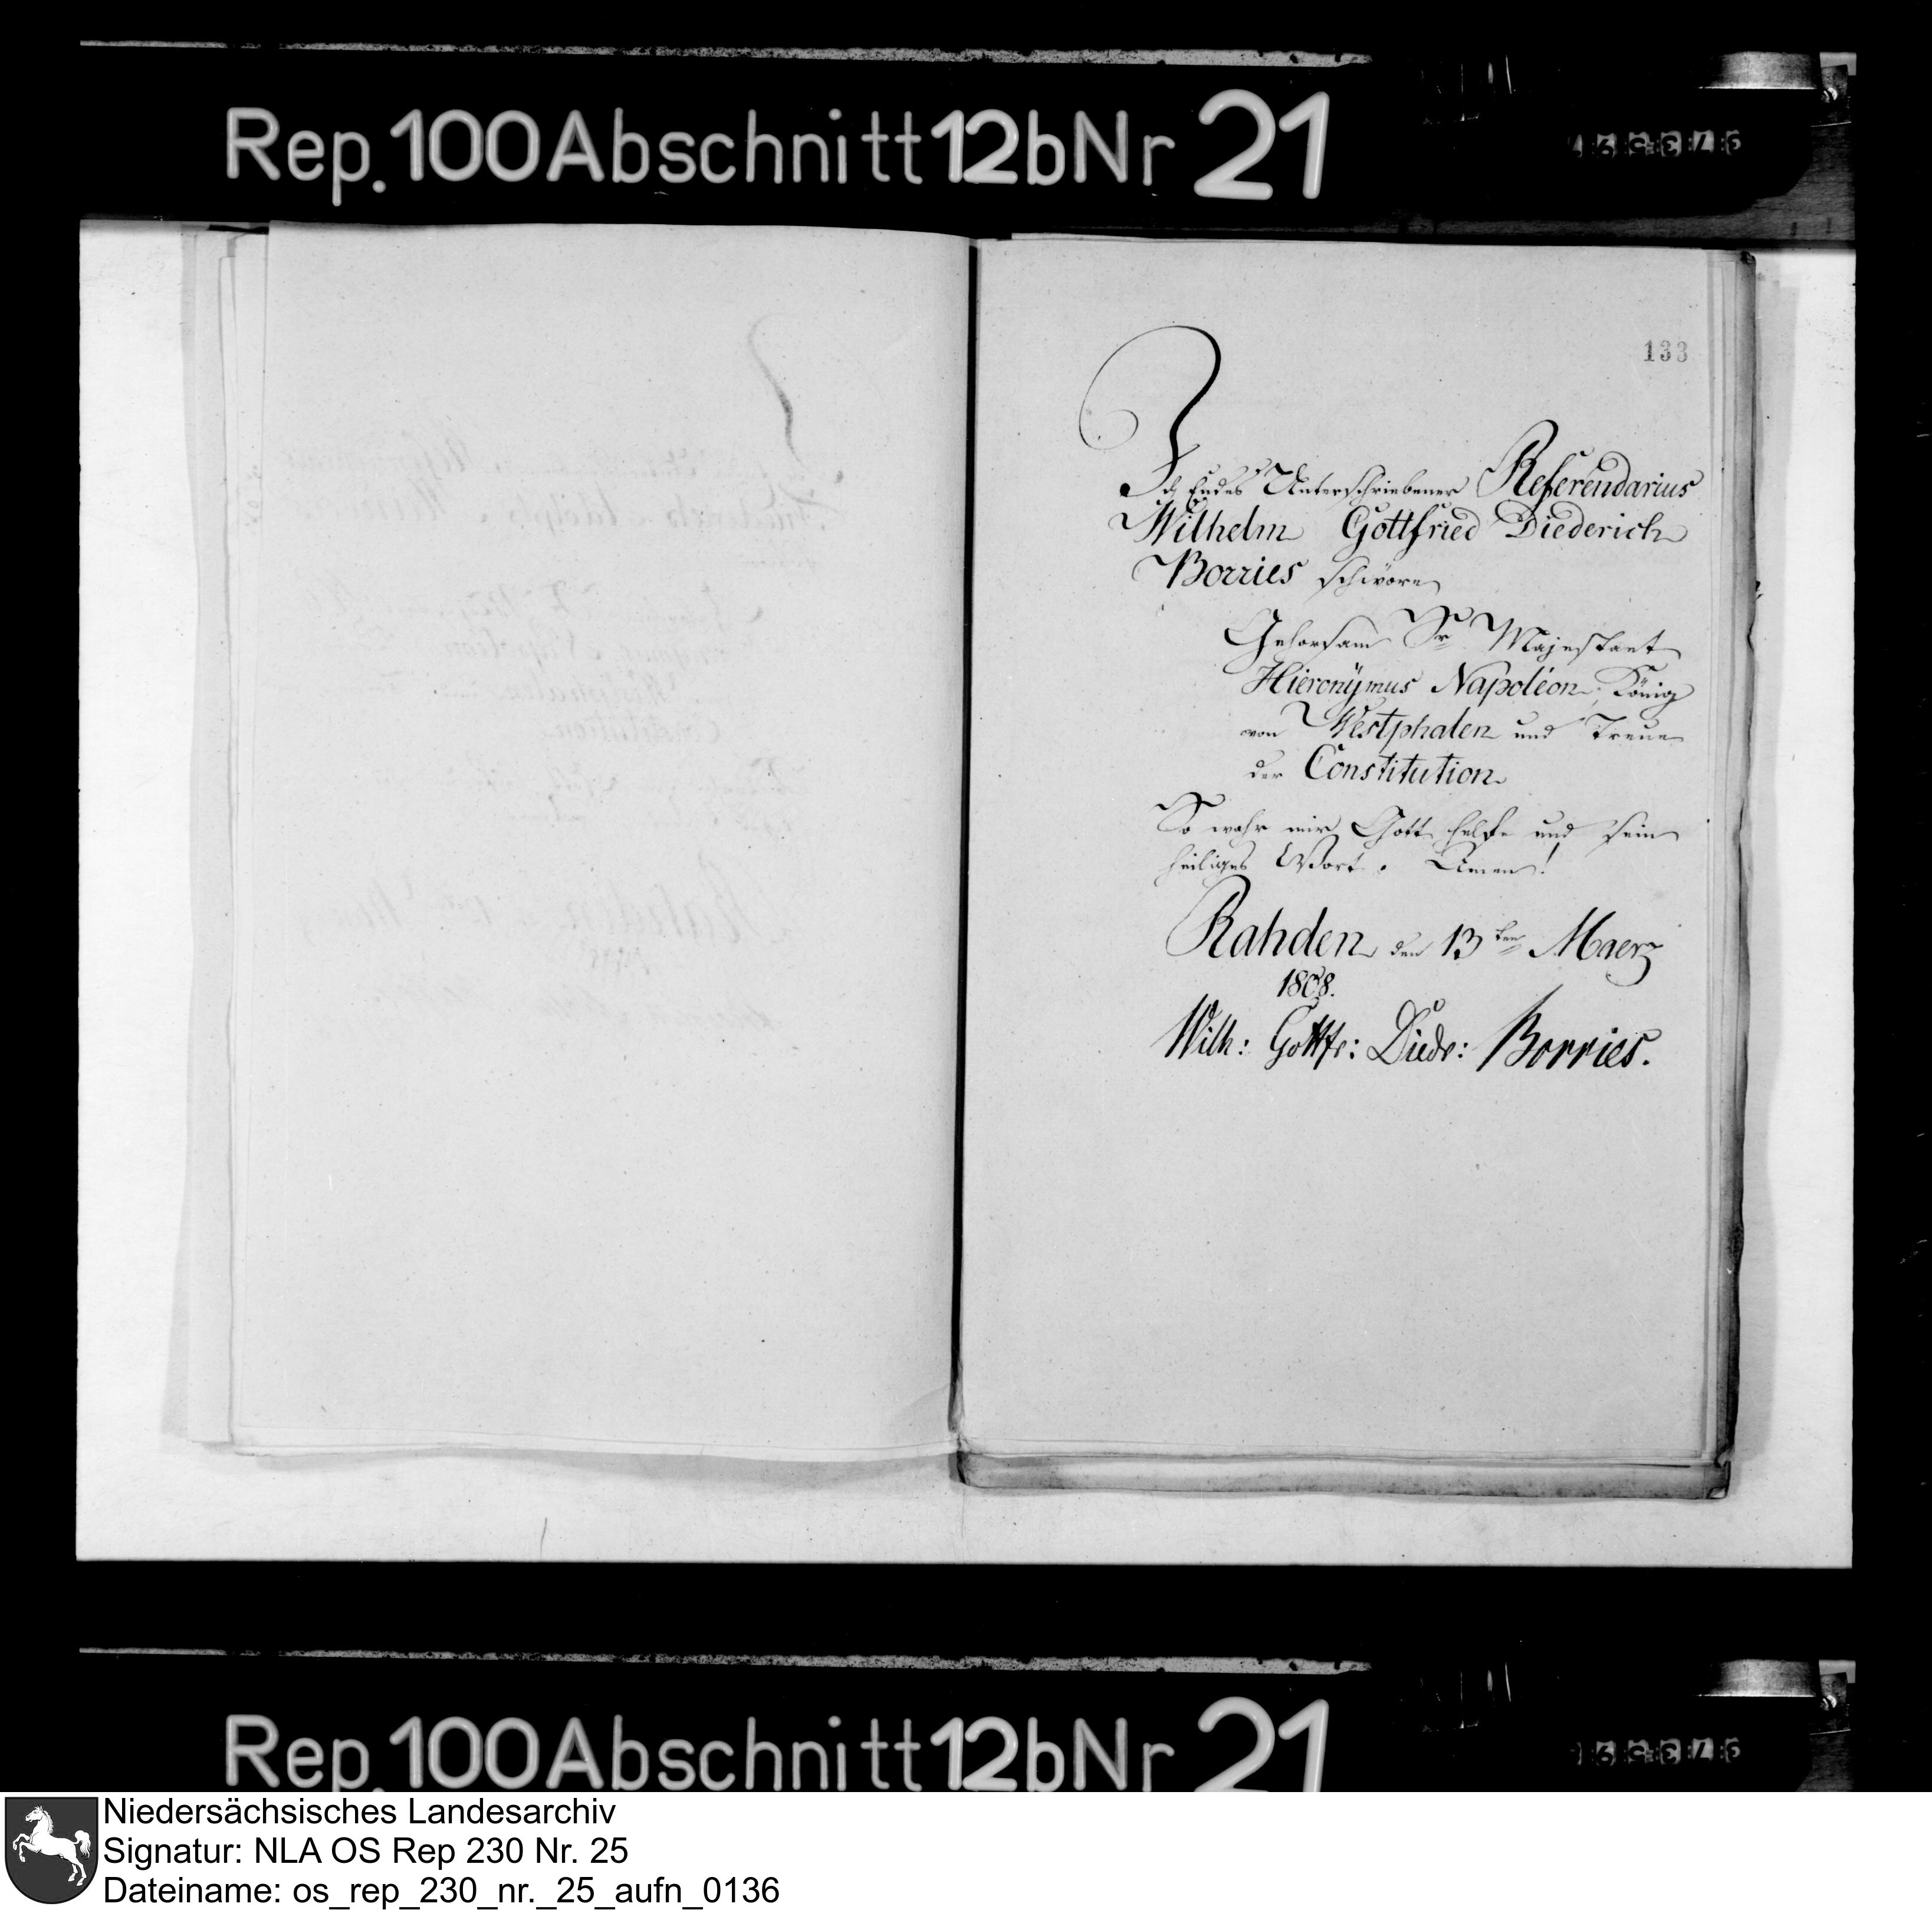 Rep.100Abschnitt12bNr 21
133
Ich Endes Unterschriebener Referendarius
Wilhelm Gottfried Diederich
Borries schwöre
Gehorsam Sr Majestaet
Hieronÿmus Napoléon, König
von Westphalen und Treue
der Constitution
So wahr mir Gott helfe und sein
heiliges Wort. Amen!
Rahden den 13ten Maerz
1808.
Wilh: Gottfr: Diedr: Borries.
Rep.100Abschnitt12bNr 21
Niedersächsisches Landesarchiv
Signatur: NLA OS Rep 230 Nr. 25
Dateiname: os_rep_230_nr._25_aufn_0136